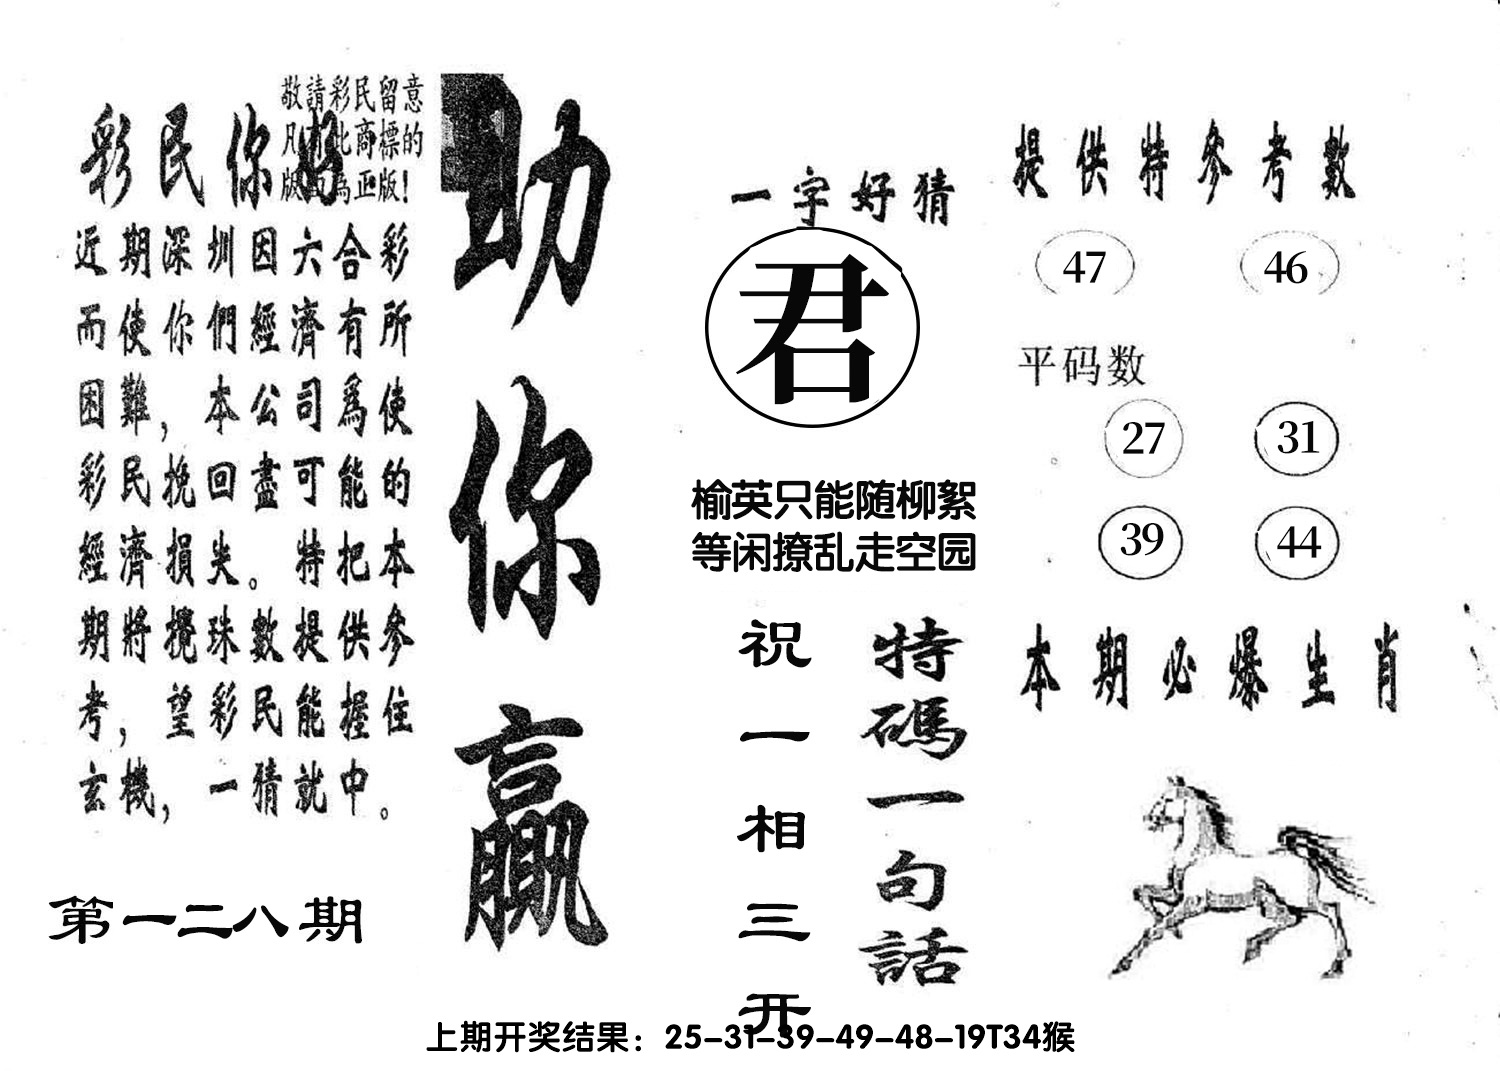 敬請彩民留意
凡有此商標的
版面為正版!
彩民你好
近期深圳因六合彩
而使你們經濟有所
困難，本公司爲使
彩民挽回盡可能的
經濟損失。特把本
期將攪珠數提供參
考，望彩民能握住
玄機，一猜就中。
第一二八期
助你贏
一字好猜
君
榆英只能随柳絮
等闲撩乱走空园
特碼一句話
祝一相三开
提供特參考數
47 46
平码数
27 31
39 44
本期必爆生肖
上期开奖结果：25-31-39-49-48-19T34猴